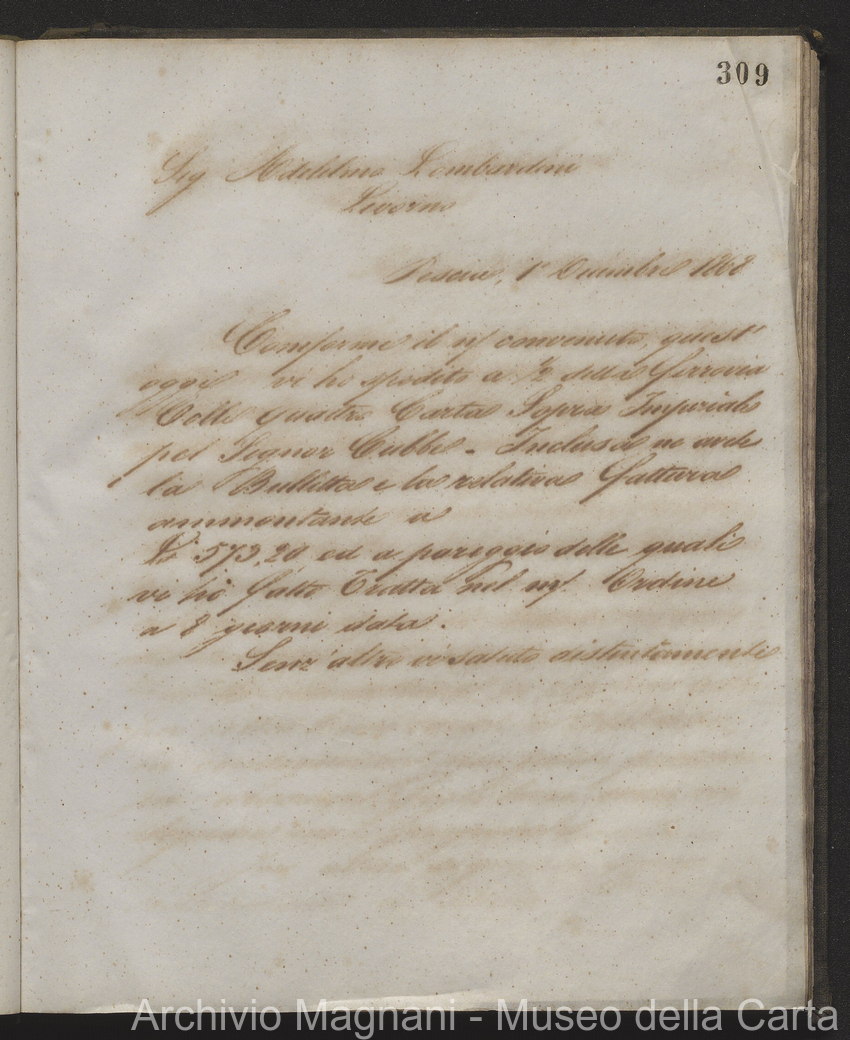 309
Sig Adelelmo Lombardoni
Livorno
Pescia, 1° Dicembre 1868
Conforme il n/ convenuto, quest'
oggi vi ho spedito a 1/2 della Ferrovia
Colli quattro Carta Sopra Imperiale
pel Signor - Inclusa ne avrete
la Bulletta e la relativa fattura
ammontante a
573,20 ed a pareggio delle quali
vi ho fatto Tratta nel m/ Ordine
a 8 giorni data.
Senz'altro vi saluto distintamente
Archivio Magnani - Museo della Carta